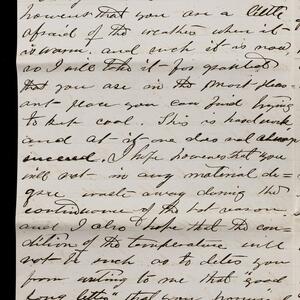 however that you are a little
afraid of the weather when it
is warm. and such it is now,
so I will take it for granted
that you are in the most pleas
ant place you can find trying
to keep cool. This is hard work
and at it one does not always
succeed. I hope however that you
will not in any material de-
gree waste away during the
continuance of the hot season.
and I also hope that the con-
dition of the temperature will
not be such as to deter you
from writing to me that "good
long letter" that your